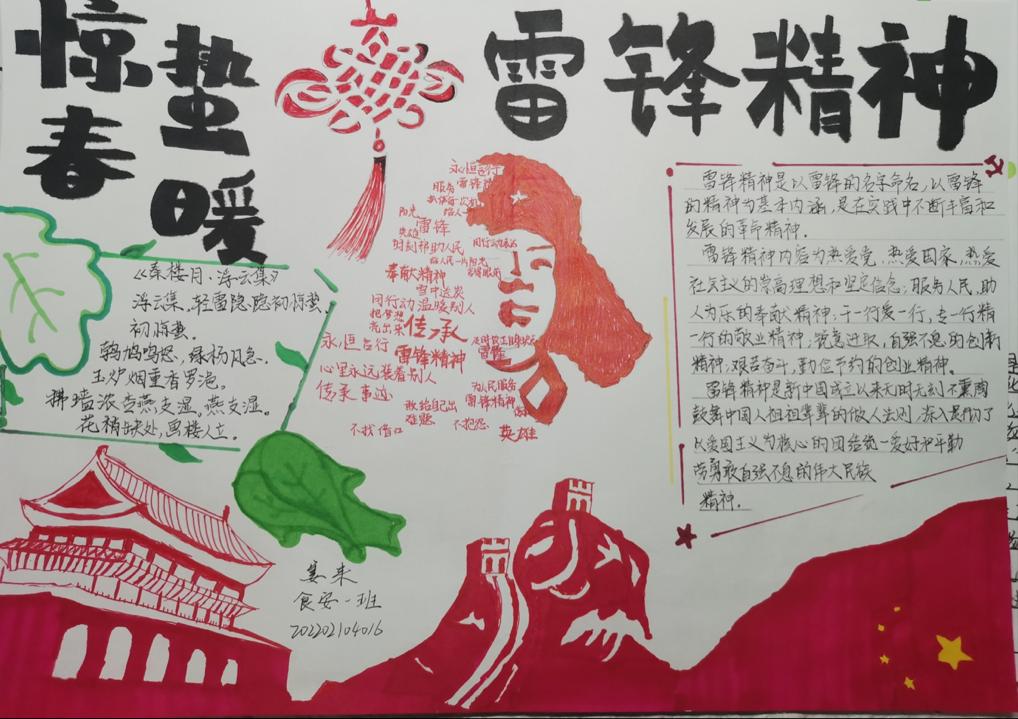 惊蛰
春暖
雷锋精神
《秦楼月·浮云集》
浮云集,轻雷隐隐初惊蛰,
初惊蛰。
鹁鸠鸣怒,绿杨风急。
玉炉烟重香罗浥。
拂墙浓杏燕支湿。燕支湿。
花梢缺处,画楼人立。
永恒言行
服务 雷锋
阳光
雷锋
时刻帮助人民
奉献精神
雪中送炭
同行动 温暖别人
把梦想
亮出来 传承
永恒言行
雷锋精神
雷锋
心里永远装着别人
传承 事迹
为人民服务
雷锋精神
敢给自己出
难题
不找借口
不抱怨
英雄
雷锋精神是以雷锋的名字命名,以雷锋
的精神为基本内涵,是在实践中不断丰富和
发展的革新精神。
雷锋精神内容为热爱党,热爱国家,热爱
社会主义的崇高理想和坚定信念;服务人民,助
人为乐的奉献精神;干一行爱一行,专一行精
一行的敬业精神;锐意进取,自强不息的创新
精神;艰苦奋斗,勤俭节约的创业精神。
雷锋精神是新中国成立以来无时无刻不熏陶
鼓舞中国人
的做人法则,深入
了
以爱国主义为核心的团结统一爱好和平勤
劳勇敢自强不息的伟大民族
精神。
姜来
食安一班
202202104016